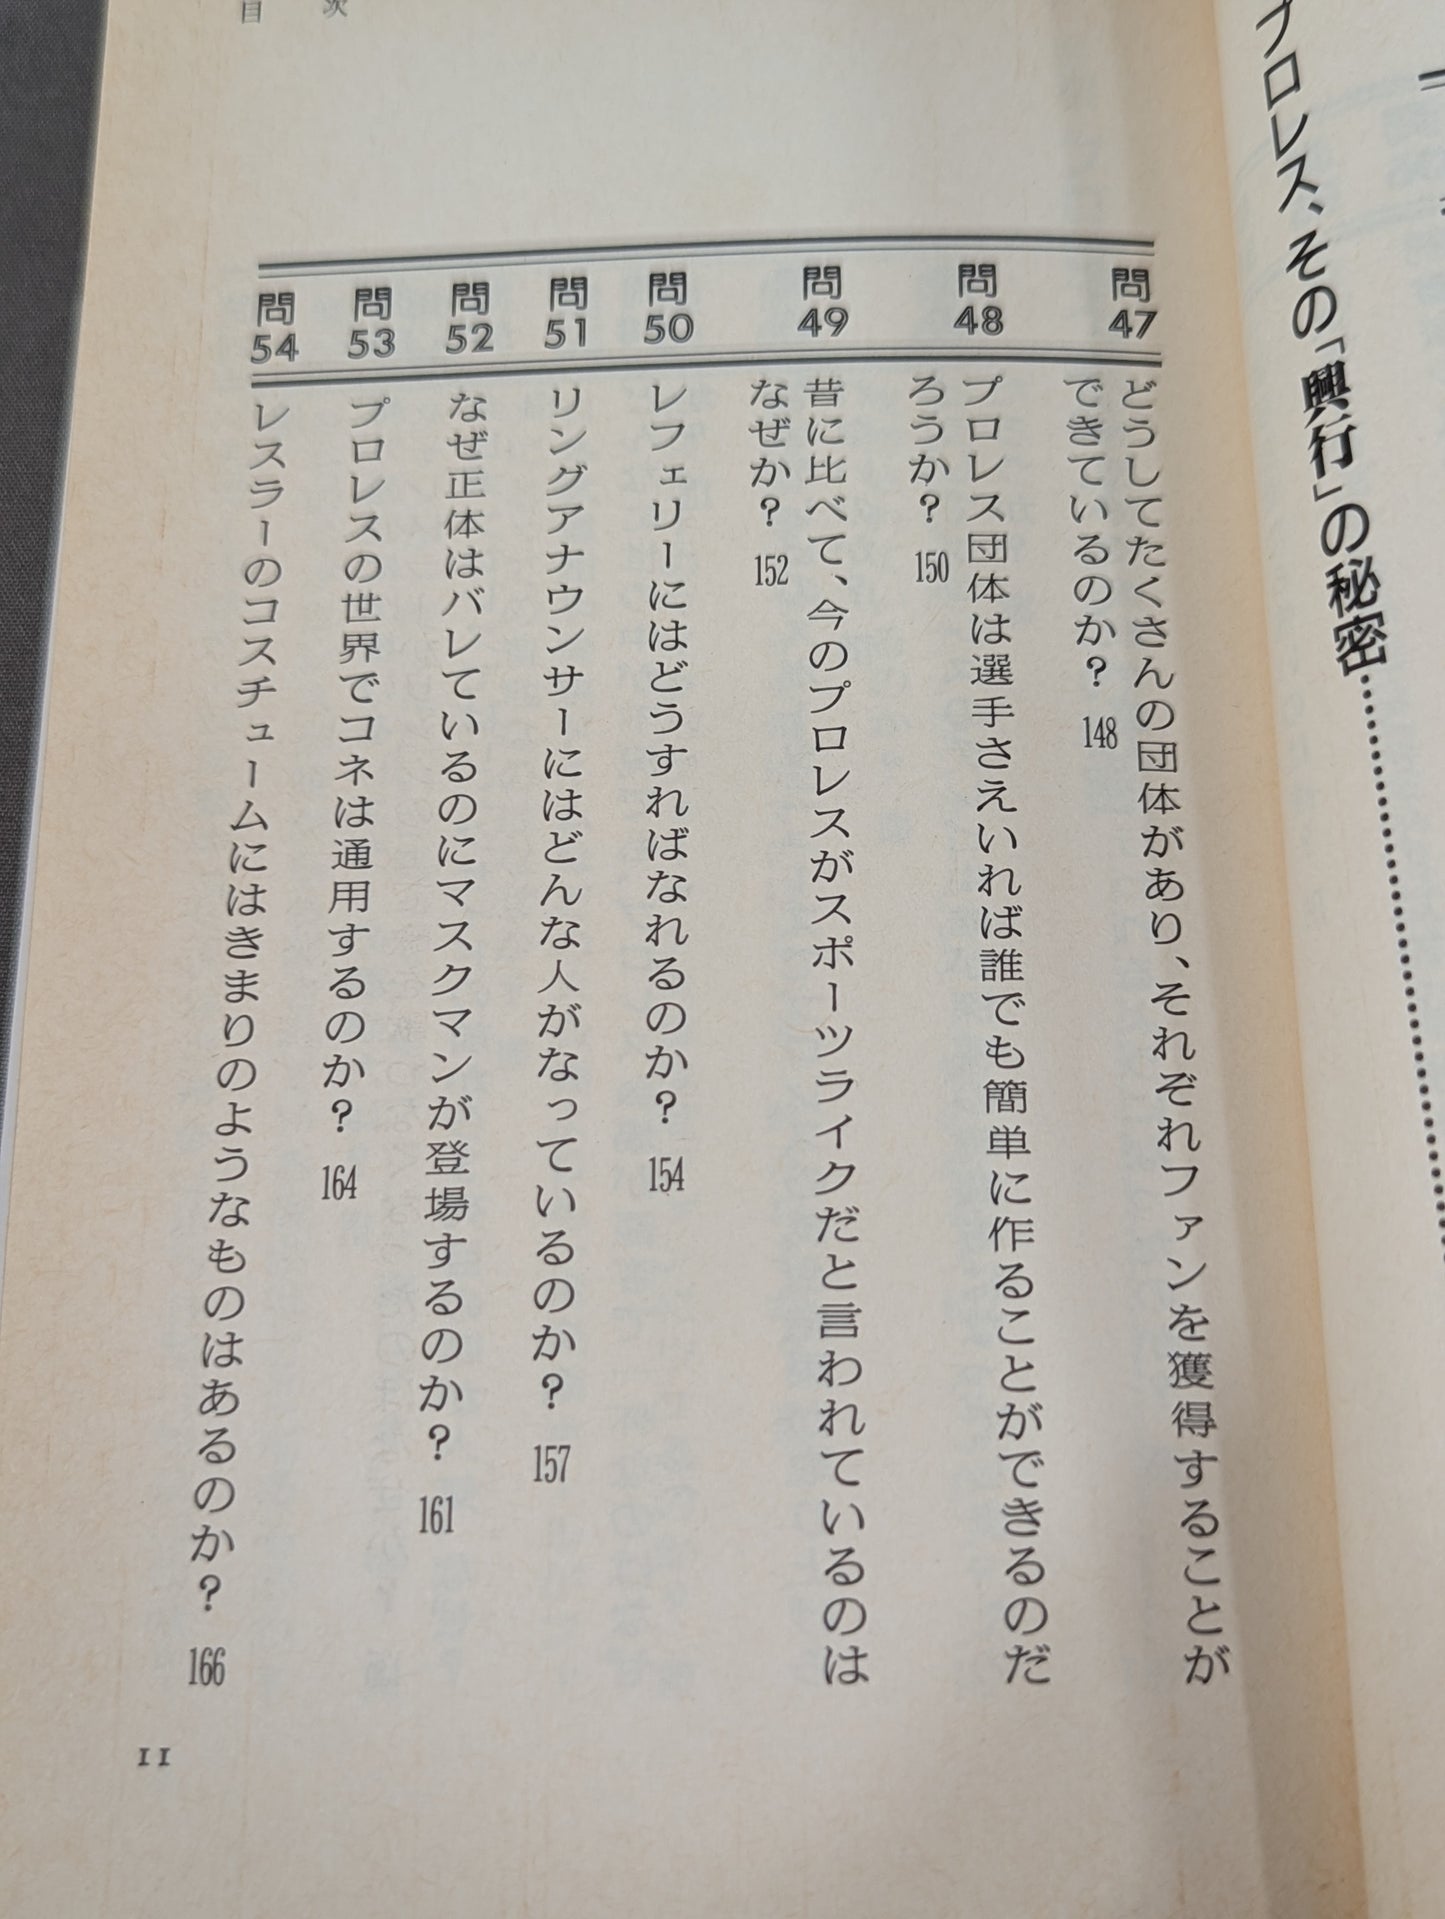 プロレス、その「興行」の秘密……………………
問47
どうしてたくさんの団体があり、それぞれファンを獲得することが
できているのか? 148
問48
プロレス団体は選手さえいれば誰でも簡単に作ることができるのだ
ろうか? 150
問49
昔に比べて、今のプロレスがスポーツライクだと言われているのは
なぜか? 152
問50
レフェリーにはどうすればなれるのか? 154
問51
リングアナウンサーにはどんな人がなっているのか? 157
問52
なぜ正体はバレているのにマスクマンが登場するのか? 161
問53
プロレスの世界でコネは通用するのか? 164
問54
レスラーのコスチュームにはきまりのようなものはあるのか? 166
目次
11